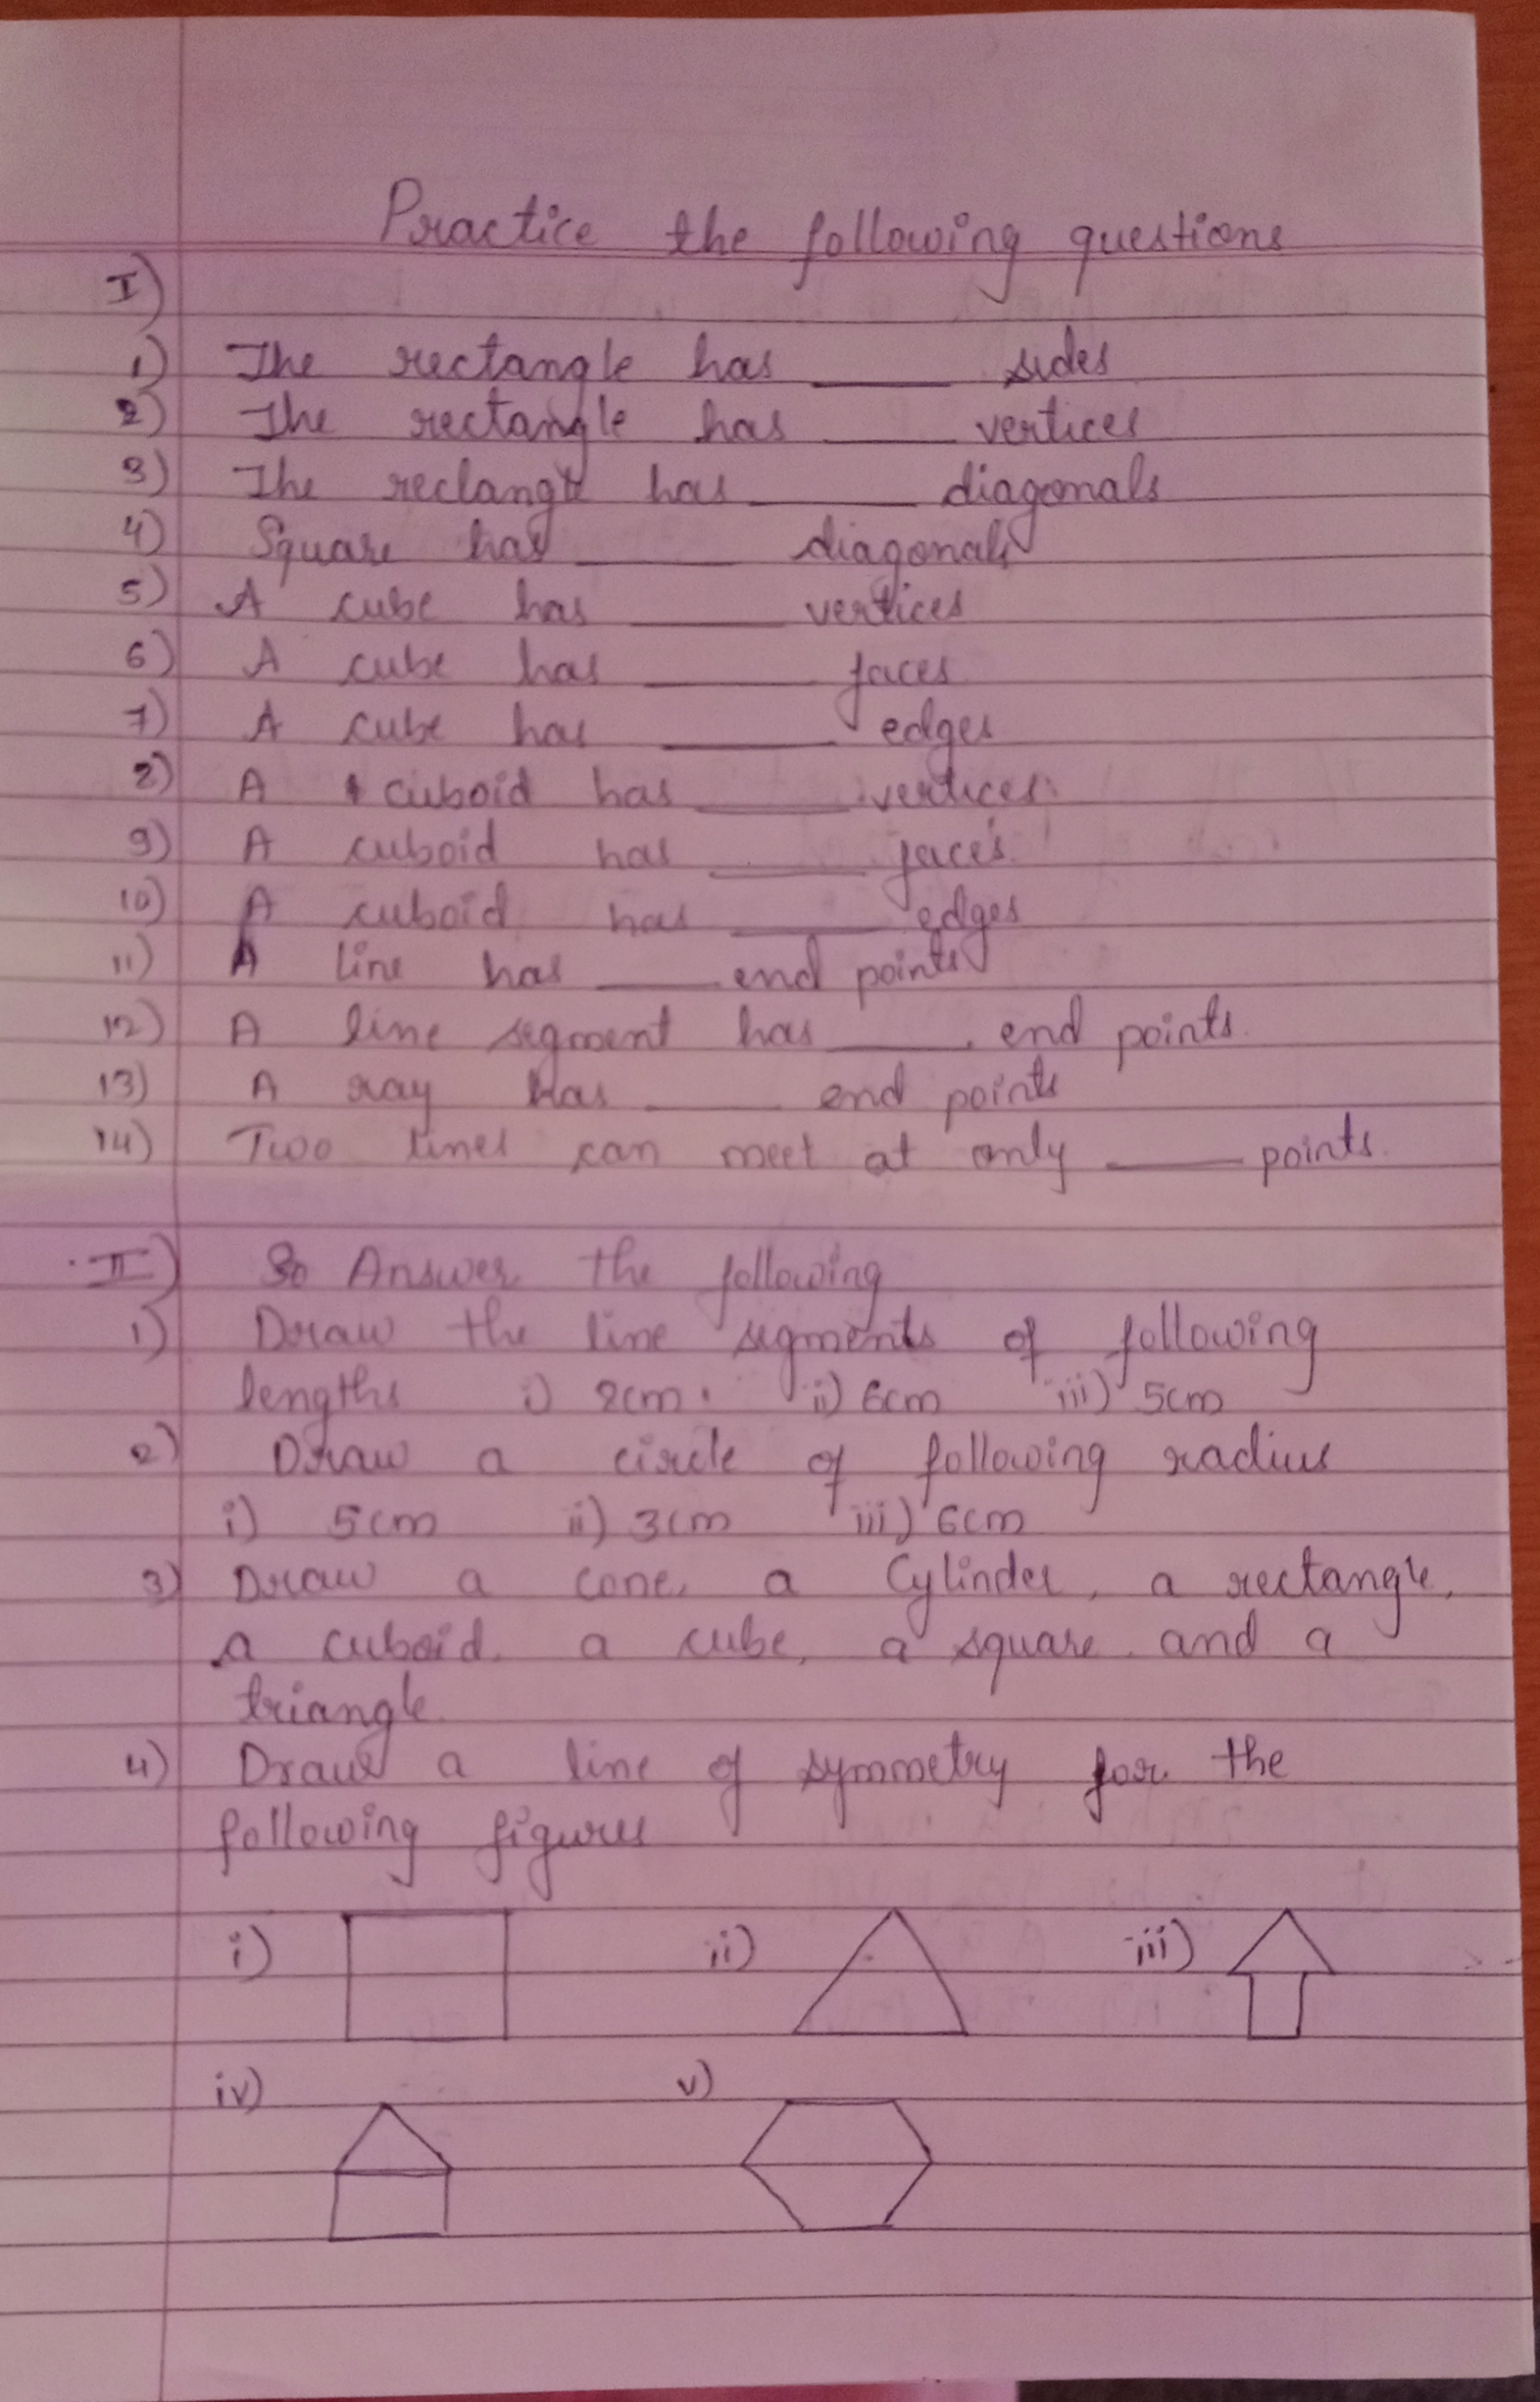 Practice the following questions
I)
1) The rectangle has ____ sides
2) The rectangle has ____ vertices
3) The reclangle has ____ diagonals
4) Square has ____ diagonals
5) A cube has ____ vertices
6) A cube has ____ faces
7) A cube has ____ edges
8) A cuboid has ____ vertices.
9) A cuboid has ____ faces.
10) A cuboid has ____ edges
11) A line has ____ end points
12) A line segment has ____ end points.
13) A ray has ____ end points
14) Two lines can meet at only ____ points.
II) So Answer the following
1) Draw the line segments of following
lengths i) 2cm. ii) 6cm iii) 5cm
2) Draw a circle of following radius
i) 5cm ii) 3cm iii) 6cm
3) Draw a cone, a Cylinder, a rectangle,
a cuboid, a cube, a square and a
triangle.
4) Draw a line of symmetry for the
following figures
i) ii) iii)
iv) v)